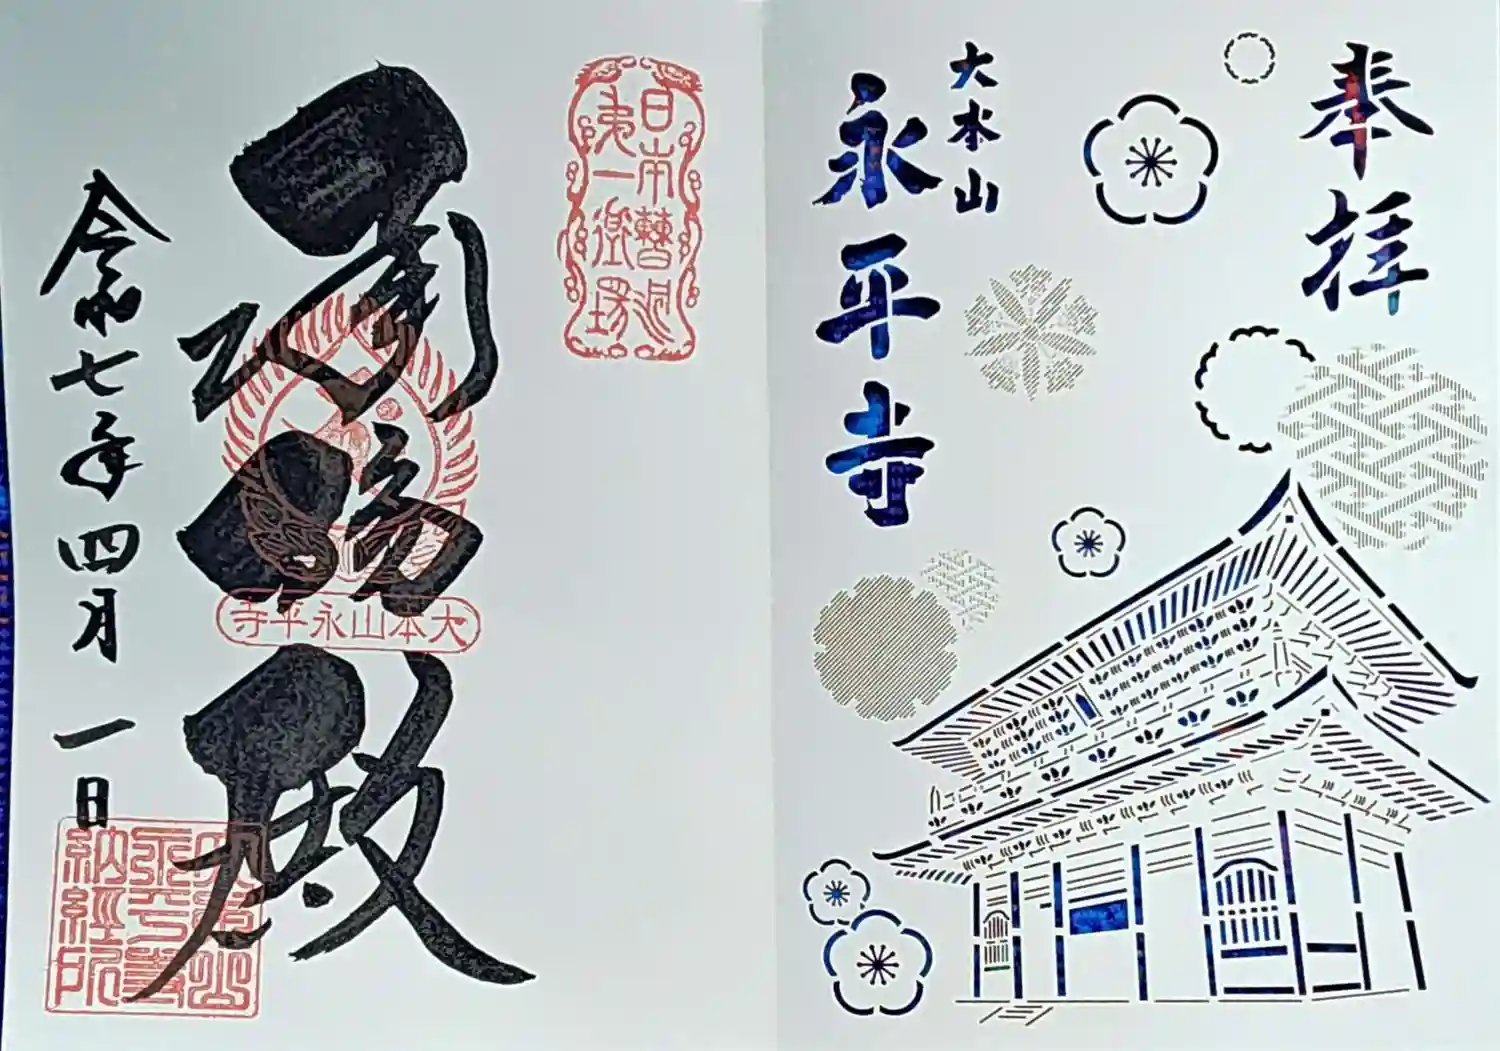 奉拝
大本山
永平寺
日本曹洞
第一道場
承陽殿
大本山永平寺
令和七年四月一日
大本山
永平寺
納經所